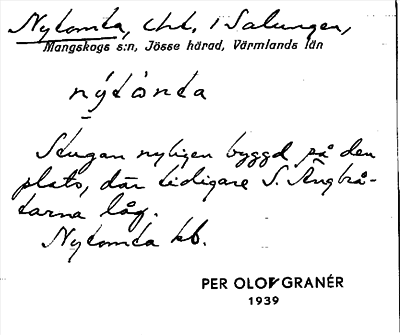 Nytomta, cht. i Salungen,
Mangskogs s:n, Jösse härad, Värmlands län
nýtὰmta
Stugan nyligen byggd på den
plats, där tidigare S. Ängbrå-
tarna låg.
Nytomta kb.
PER OLOF GRANÉR
1939